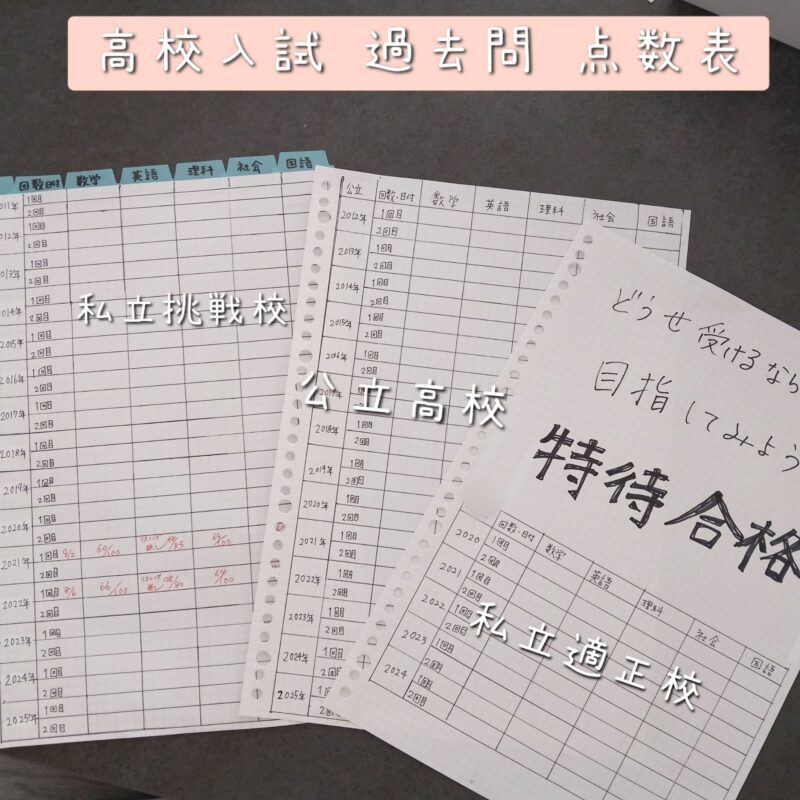 高校入試 過去問 点数表
回数・日付 数学 英語 理科 社会 国語
2011年 1回目
2回目
2012年 1回目
2回目
2013年 1回目
2回目
2014年 1回目
2回目
2015年 1回目
2回目
2016年 1回目
2回目
2017年 1回目
2回目
2018年 1回目
2回目
2019年 1回目
2回目
2020年 1回目
2回目
2021年 1回目 60/100 リスニング無し 64/100
2回目
2022年 1回目 66/100 リスニング無し 64/100
2回目
2023年 1回目
2回目
2024年 1回目
2回目
2025年 1回目
2回目
私立挑戦校
公立 回数・日付 数学 英語 理科 社会 国語
2012年 1回目
2回目
2013年 1回目
2回目
2014年 1回目
2回目
2015年 1回目
2回目
2016年 1回目
2回目
2017年 1回目
2回目
2018年 1回目
2回目
2019年 1回目
2回目
2020年 1回目
2回目
2021年 1回目
2回目
2022年 1回目
2回目
2023年 1回目
2回目
2024年 1回目
2回目
2025年 1回目
公立高校
どうせ受けるなら
目指してみよう
特待合格
回数・日付 数学 英語 理科 社会 国語
2020 1回目
2回目
2021 1回目
2回目
2022 1回目
2回目
2023 1回目
2回目
2024 1回目
2回目
私立適正校